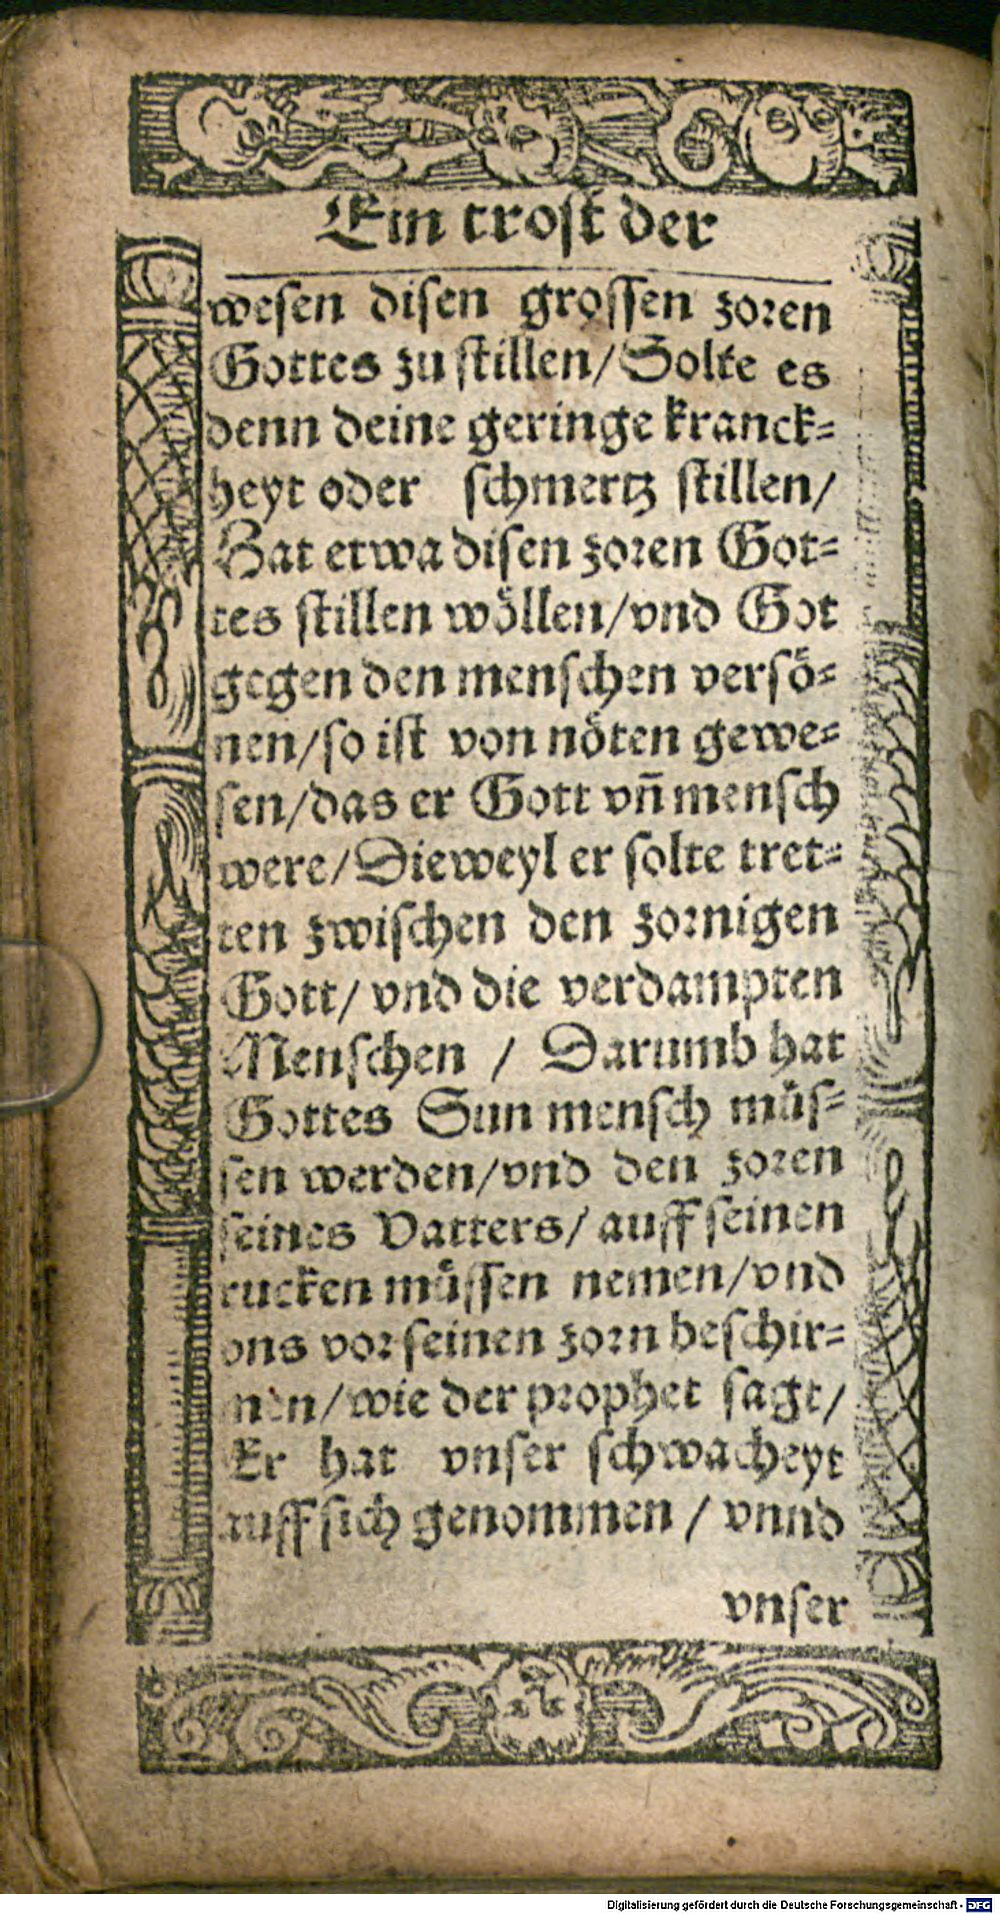 Ein trost der
wesen disen grossen zoren
Gottes zu stillen/Solte es
denn deine geringe kranck=
heyt oder schmertz stillen/
Hat etwa disen zoren Got=
tes stillen wöllen/vnd Got
gegen den menschen versö=
nen/so ist von nöten gewe=
sen/das er Gott vn̄ mensch
were/Dieweyl er solte tret=
ten zwischen den zornigen
Gott/ vnd die verdampten
Menschen / Darumb hat
Gottes Sun mensch müs=
sen werden/vnd den zoren
seines Vatters/ auff seinen
rucken müssen nemen/vnd
vns vor seinen zorn beschir=
men/wie der prophet sagt/
Er hat vnser schwacheyt
auff sich genommen / vnnd
vnser
Digitalisierung gefördert durch die Deutsche Forschungsgemeinschaft - DFG